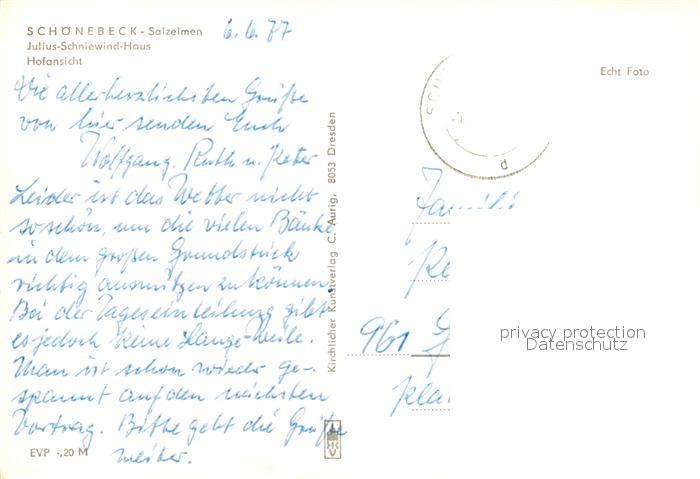 SCHÖNEBECK - Salzelmen
Julius-Schniewind-Haus
Hofansicht
6.6.77
Echt Foto
Die allerherzlichsten Grüße
von hier senden Euch
Wolfgang, Ruth u. Peter
Leider ist das Wetter nicht
so schön, um die vielen Bänke
in dem großen Grundstück
richtig ausnützen zu können.
Bei der Tageseinteilung gibt
es jedoch keine Lange-Weile.
Man ist schon wieder ge-
spannt auf den nächsten
Vortrag. Bitte gebt die Grüße
weiter.
EVP -,20 M
Kirchlicher Kunstverlag C. Aurig, 8053 Dresden
Famili
961
privacy protection
Datenschutz